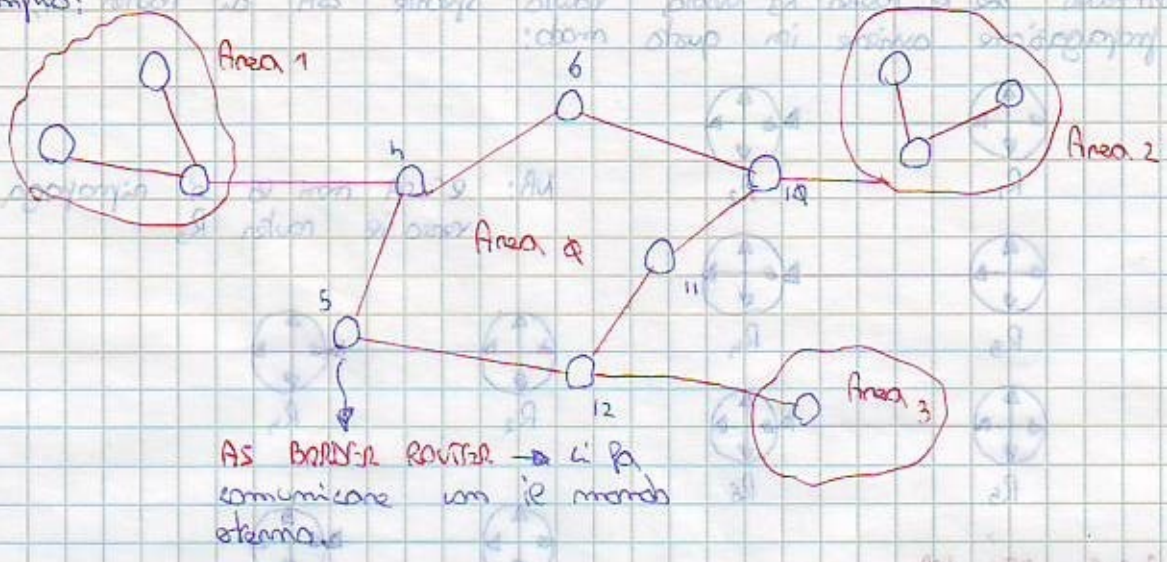 Area 1
6
4
Area 2
10
Area 0
11
5
12
Area 3
AS BORDER ROUTER → ci fa
comunicare con il mondo
esterno.